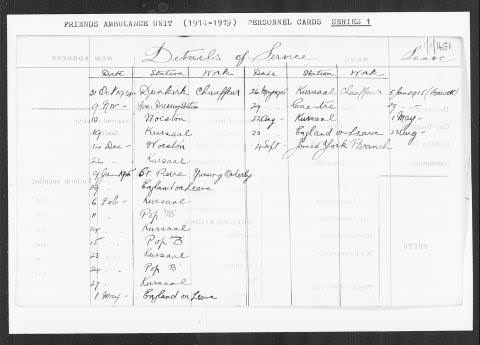 FRIENDS AMBULANCE UNIT (1914-1919) PERSONNEL CARDS SERIES 1
Details of Service
Leave
Date Station Work Date Station Work
31 Oct 1914 Dunkerk Chauffeur 26 May 1915 Kursaal Chauffeur 5 Jan 1915
9 Nov - Dressing Station 29 " 29 "
10 " Woesten 22 Aug - Kursaal 1 May -
19 " Kursaal 23 England on Leave 23 Aug -
14 Dec - Woesten 4 Sept - Joined York Branch
22 " Kursaal
9 Jan 1915 St. Pierre Nursing Orderly
29 " England on Leave
6 Feb - Kursaal
11 " Pop "B"
14 " Kursaal
15 " Pop "B"
23 " Kursaal
24 " Pop "B"
27 " Kursaal
1 May - England on Leave